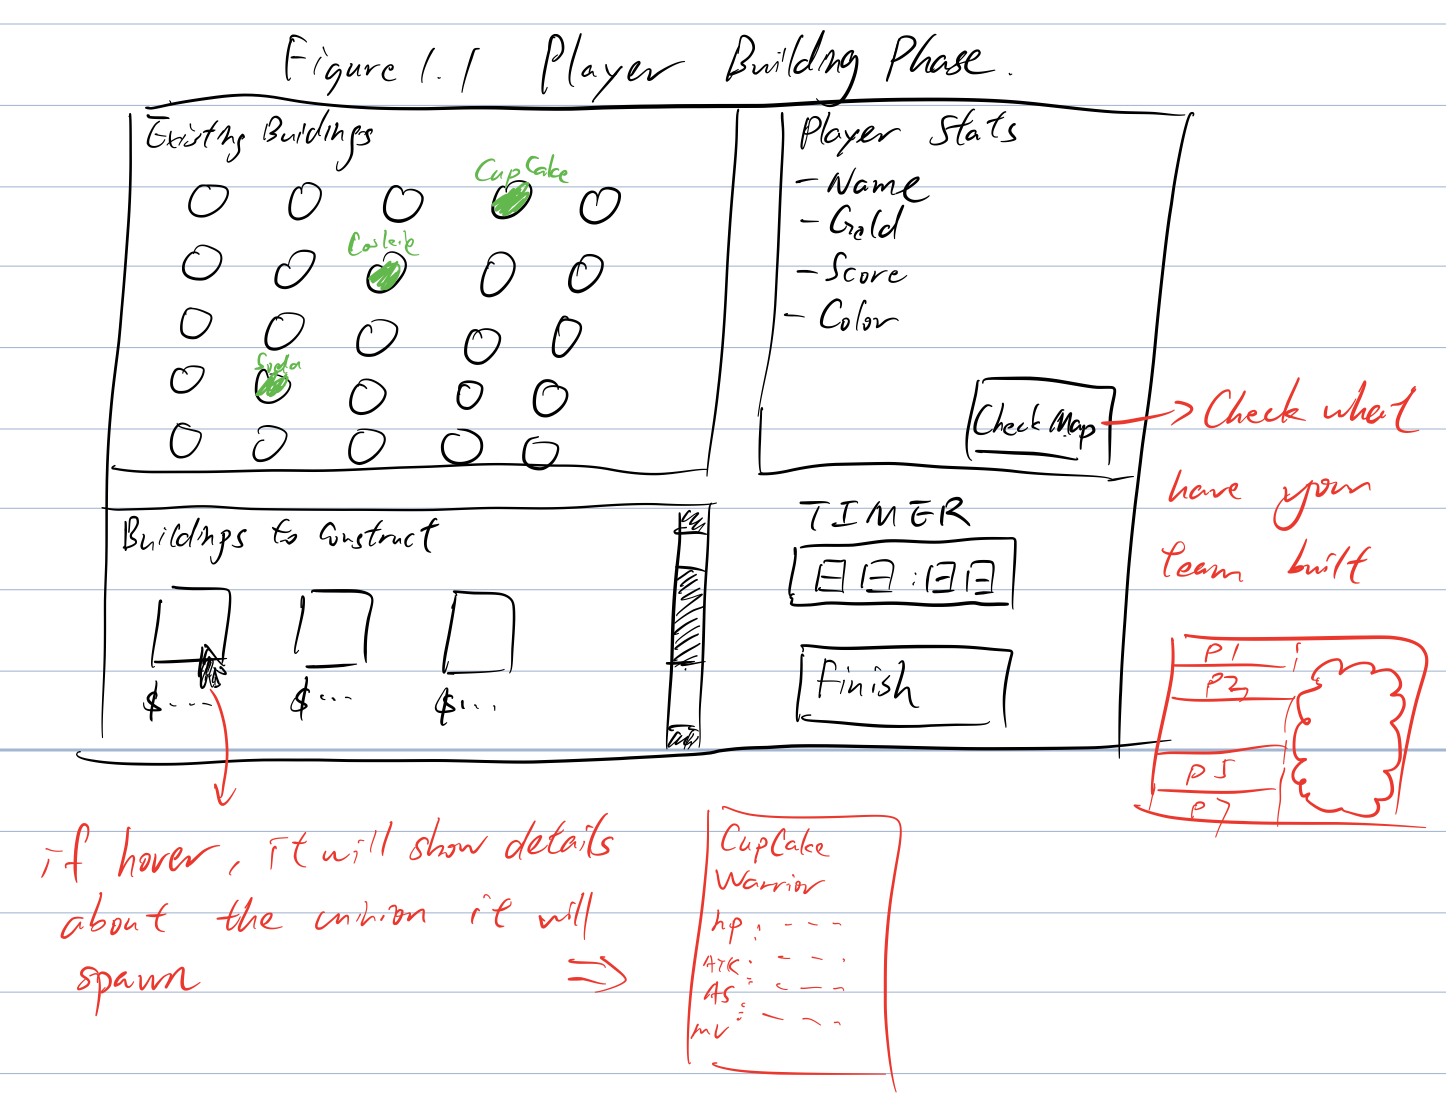 Figure 1.1 Player Building Phase.
Existing Buidings
CupCake
Soda
Player Stats
- Name
- Gold
- Score
- Color
Check Map
Check what
have your
team built
Buildings to Construct
$---
$---
$...
TIMER
Finish
P1
P3
P5
P7
if hover, it will show details
about the minion it will
spawn
CupCake
Warrior
hp : ---
ATK : ---
AS : ---
mv : ---